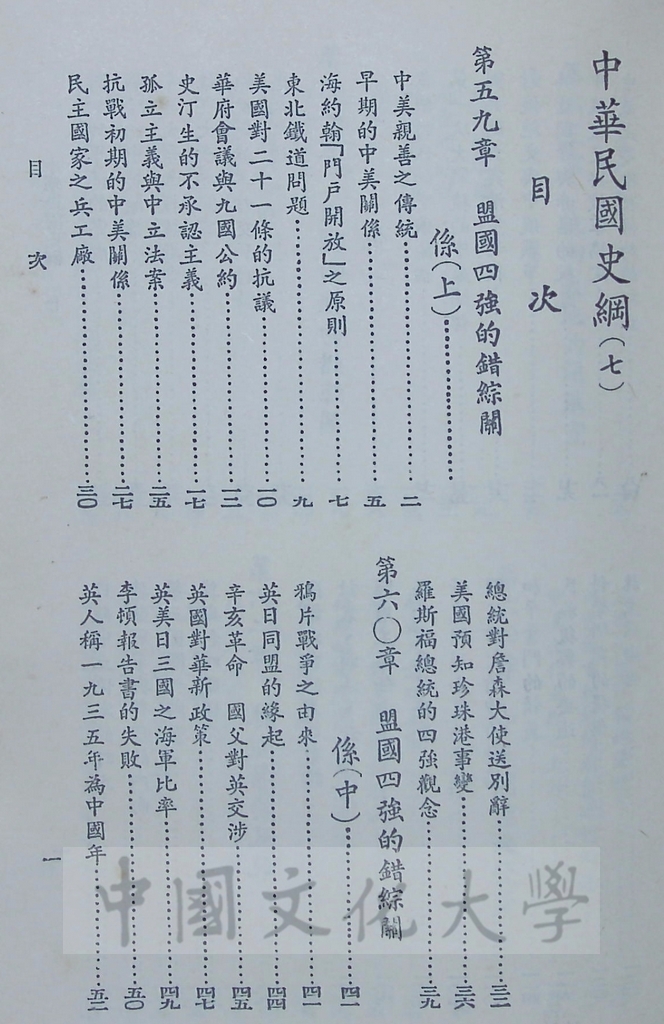 中華民國史綱(七)
目次
第五九章　盟國四強的錯綜關
係(上)
中美親善之傳統 二
早期的中美關係 五
海約翰「門戶開放」之原則 七
東北鐵道問題 九
美國對二十一條的抗議 一〇
華府會議與九國公約 一二
史汀生的不承認主義 一七
孤立主義與中立法案 二五
抗戰初期的中美關係 二七
民主國家之兵工廠 三〇
總統對詹森大使送別辭 三二
美國預知珍珠港事變 三六
羅斯福總統的四強觀念 三九
第六〇章　盟國四強的錯綜關
係(中) 四一
鴉片戰爭之由來 四一
英日同盟的緣起 四四
辛亥革命　國父對英交涉 四五
英國對華新政策 四七
英美日三國之海軍比率 四九
李頓報告書的失敗 五〇
英人稱一九三五年為中國年 五二
目次
一
中國文化大學